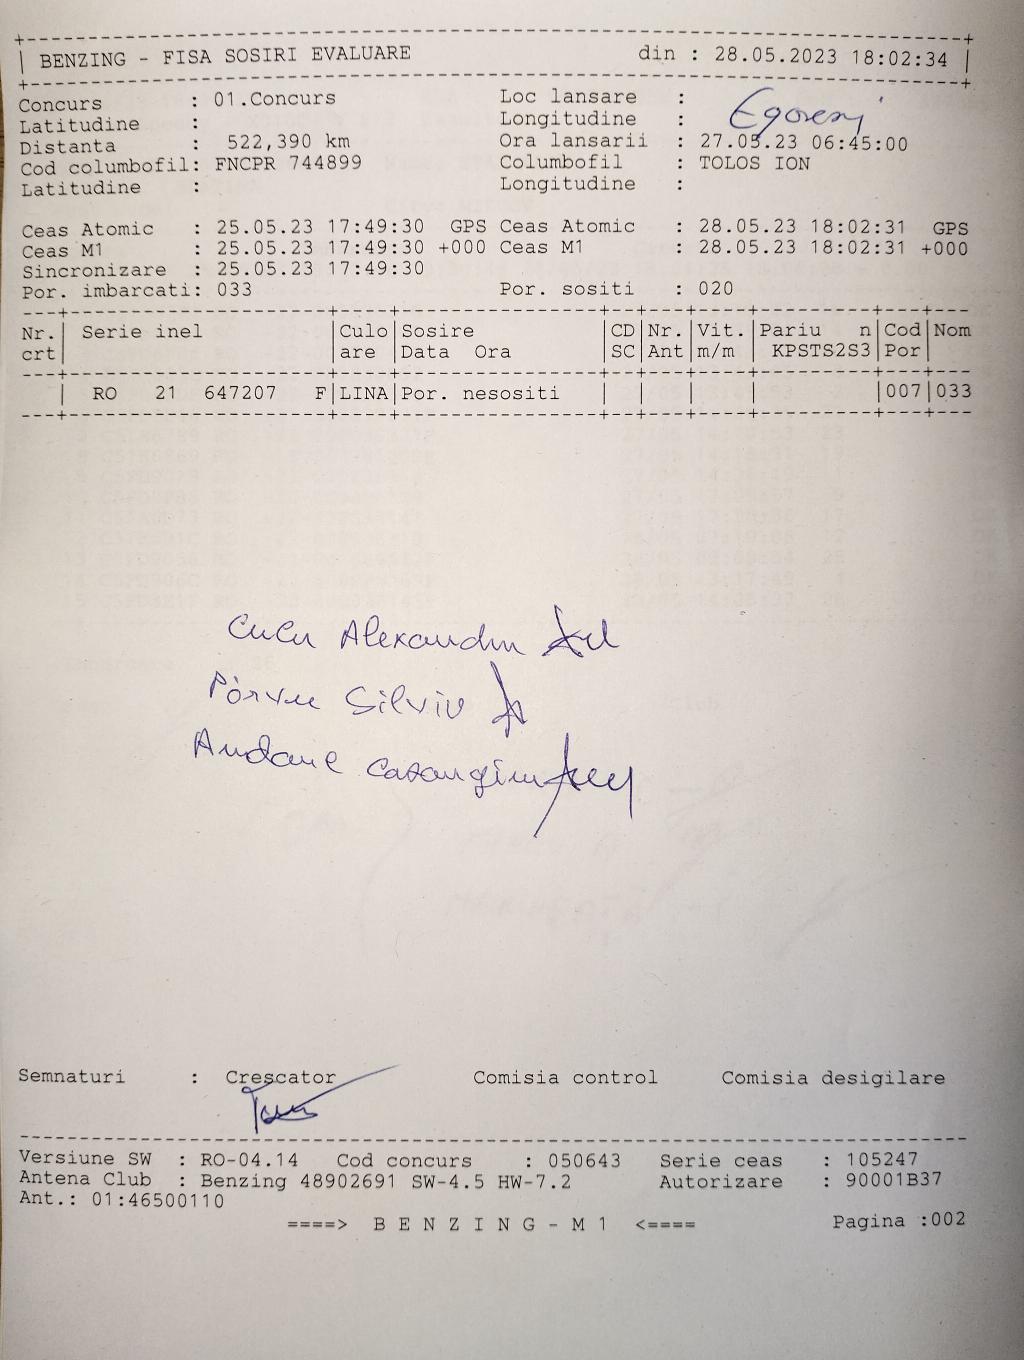 BENZING - FISA SOSIRI EVALUARE din : 28.05.2023 18:02:34
Concurs : 01.Concurs Loc lansare :
Latitudine : Longitudine :
Distanta : 522,390 km Ora lansarii : 27.05.23 06:45:00
Cod columbofil: FNCPR 744899 Columbofil : TOLOS ION
Latitudine : Longitudine :
Ceas Atomic : 25.05.23 17:49:30 GPS Ceas Atomic : 28.05.23 18:02:31 GPS
Ceas M1 : 25.05.23 17:49:30 +000 Ceas M1 : 28.05.23 18:02:31 +000
Sincronizare : 25.05.23 17:49:30
Por. imbarcati: 033 Por. sositi : 020
Nr. Serie inel Culo Sosire CD Nr. Vit. Pariu n Cod Nom
crt are Data Ora SC Ant m/m KPSTS2S3 Por
RO 21 647207 F LINA Por. nesositi 007 033
Cucu Alexandru
Pârvu Silviu
Semnaturi : Crescator Comisia control Comisia desigilare
Versiune SW : RO-04.14 Cod concurs : 050643 Serie ceas : 105247
Antena Club : Benzing 48902691 SW-4.5 HW-7.2 Autorizare : 90001B37
Ant.: 01:46500110
====> B E N Z I N G - M 1 <==== Pagina :002